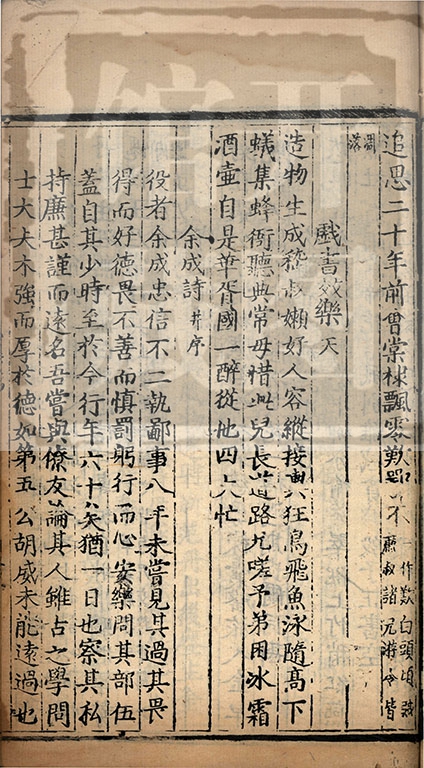 追思二十年前會棠棣飄零歎鄂不一作歎白頭頃
叔諸兄游今皆
凋落
戲書效樂天
造物生成嵇叔嬾好人容縱接輿狂鳥飛魚泳隨高下
蟻集蜂衙聽典常毋惜此兒長道路尤嗟予弟困冰霜
酒壺自是華胥國一醉從他四大忙
余成詩并序
役者余成忠信不二執鄙事八年未嘗見其過其畏
得而好德畏不善而慎罰躬行而心安樂問其部伍
蓋自其少時至於今行年六十矣猶一日也察其私
持廉甚謹而遠名吾嘗與僚友論其人雖古之學問
士大夫木強而厚於德如第五公胡威未能遠過也